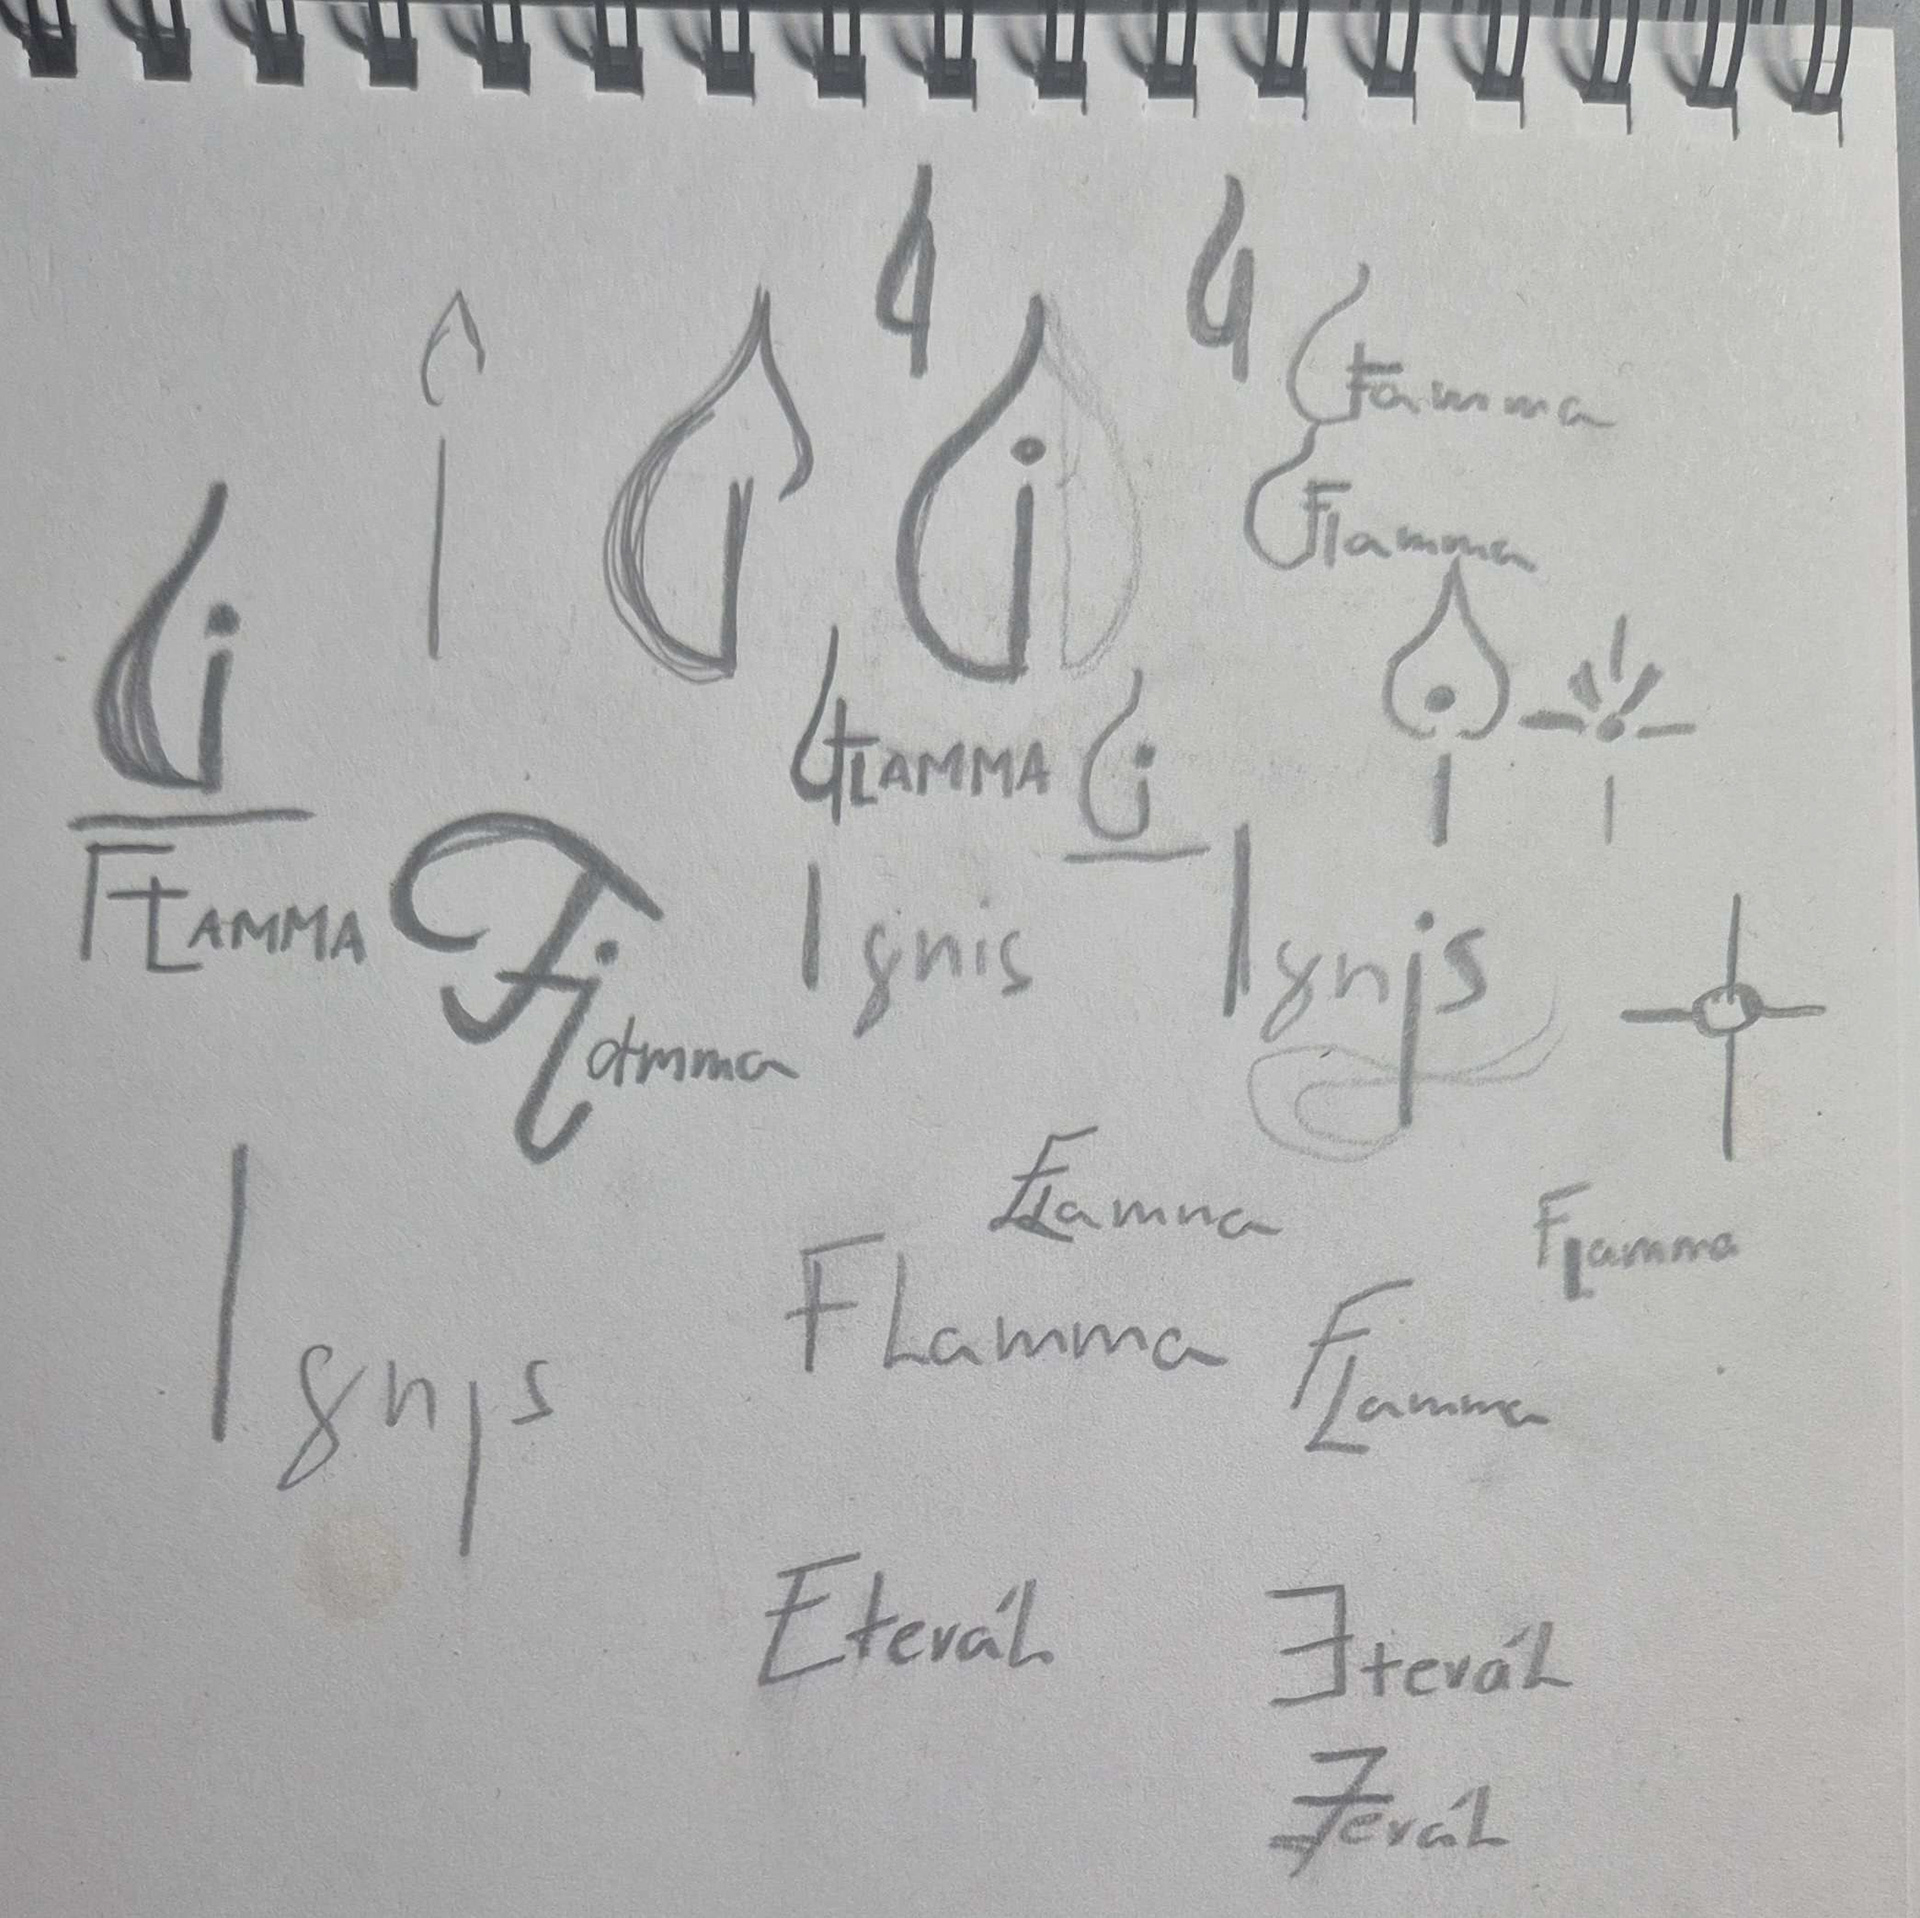 Flamma
Flamma
FLAMMA
FLAMMA
Ignis
Ignjs
Flamma
Ignjs
FLamma
FLamma
FLamma
Flamma
Eteráh
Eteráh